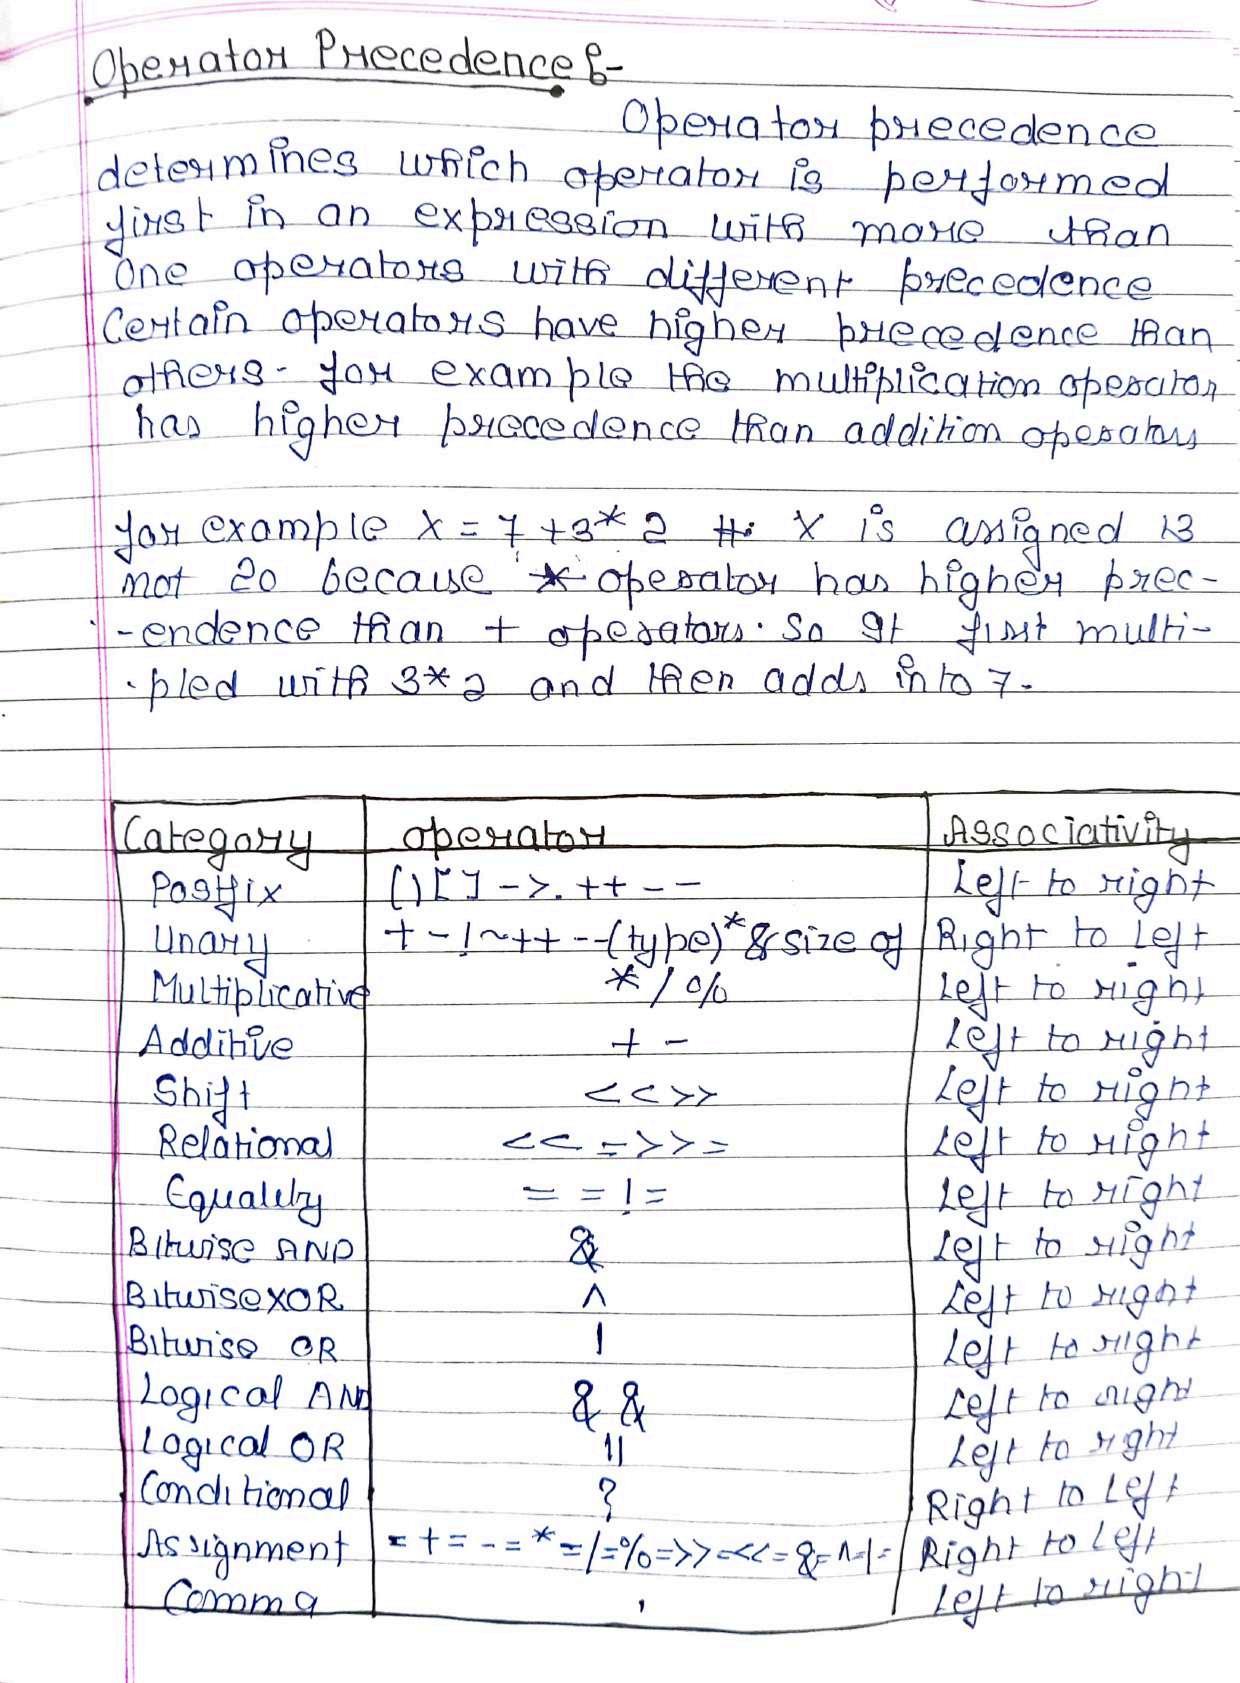 Operator Precedence :-
Operator precedence
determines which operator is performed
first in an expression with more than
one operators with different precedence
Certain operators have higher precedence than
others. for example the multiplication operator
has higher precedence than addition operators
for example x = 7 + 3 * 2 x is assigned 13
not 20 because * operator has higher prec-
-endence than + operators. So It first multi-
-pled with 3*2 and then adds into 7.
Category operator Associativity
Postfix () [] -> . ++ -- Left to right
Unary + - ! ~ ++ -- (type) * & size of Right to Left
Multiplicative * / % Left to right
Additive + - Left to right
Shift << >> Left to right
Relational < < = > > = Left to right
Equality = = != Left to right
Bitwise AND & Left to right
Bitwise XOR ^ Left to right
Bitwise OR | Left to right
Logical AND && Left to right
Logical OR || Left to right
Conditional ? Right to Left
Assignment = += -= *= /= %= >>= <<= &= ^= |= Right to Left
Comma , Left to right